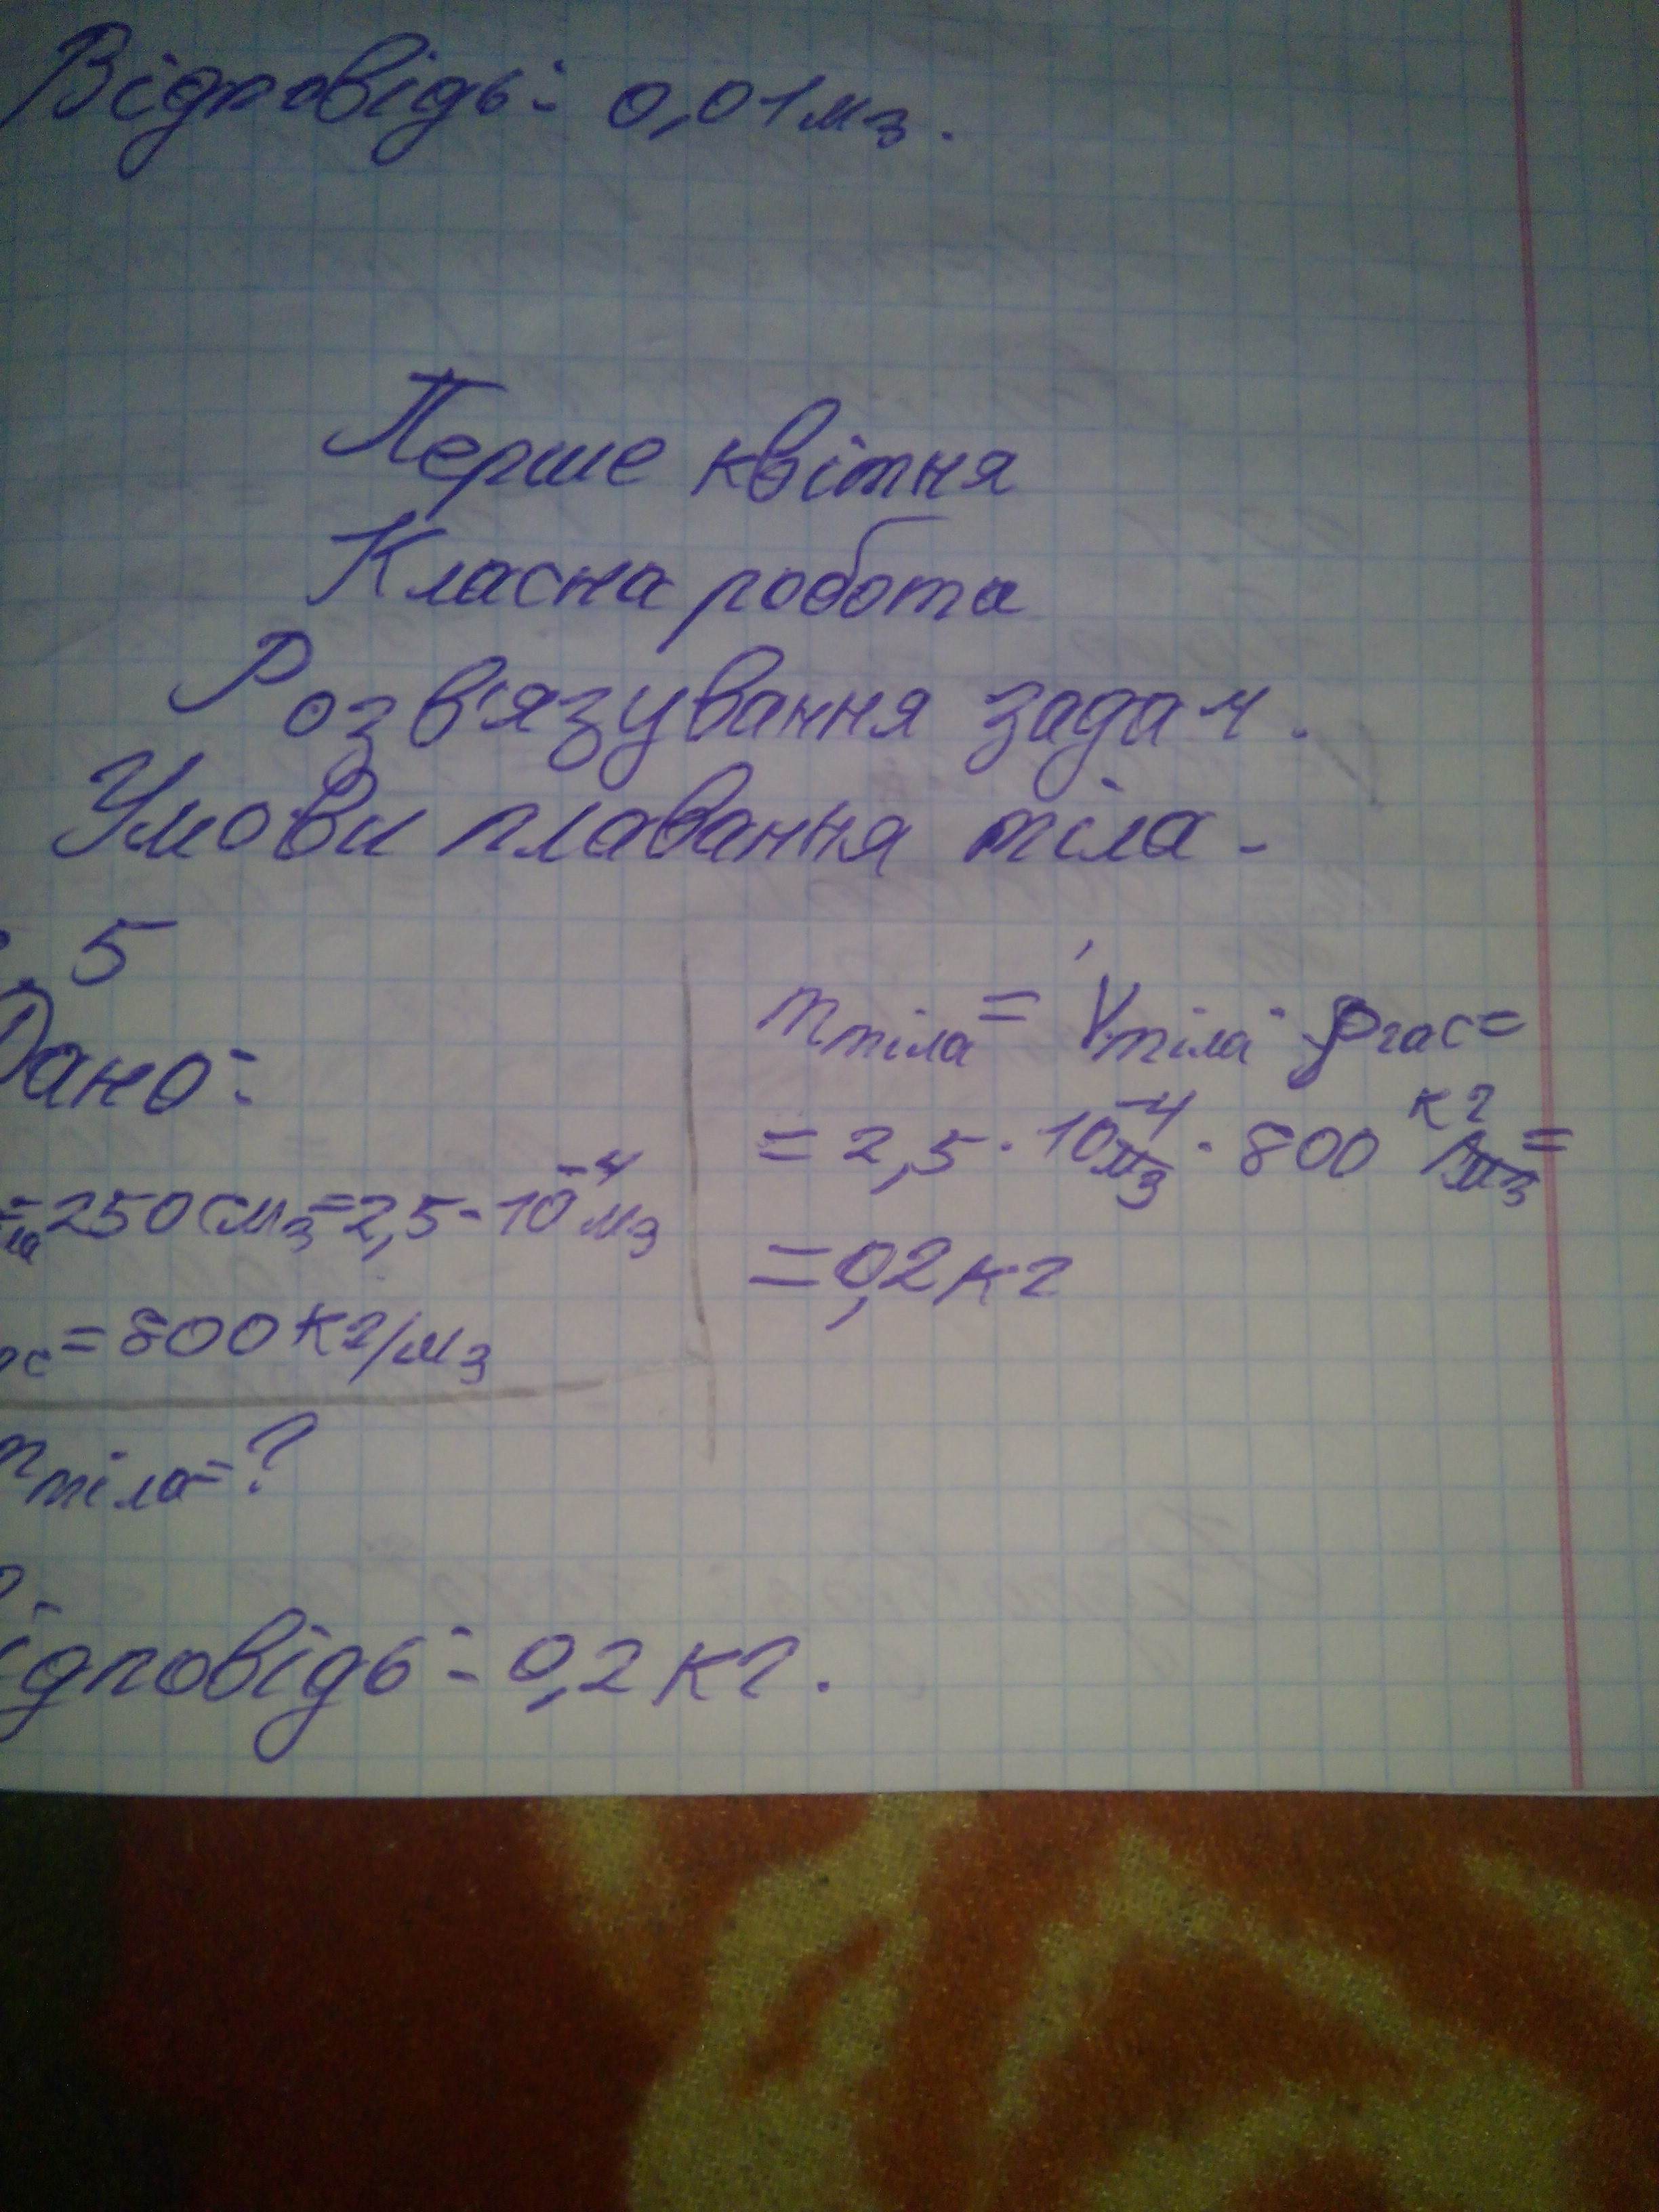 Відповідь: 0,01 м3.
Перше квітня
Класна робота
Розв'язування задач.
Умови плавання тіла.
5
Дано:
=250 см3=2,5·10⁻⁴ м3
=800 кг/м3
mтіла=?
mтіла = Vтіла · ρгас =
= 2,5 · 10⁻⁴ м3 · 800 кг/м3 =
=0,2 кг
ідповідь: 0,2 кг.